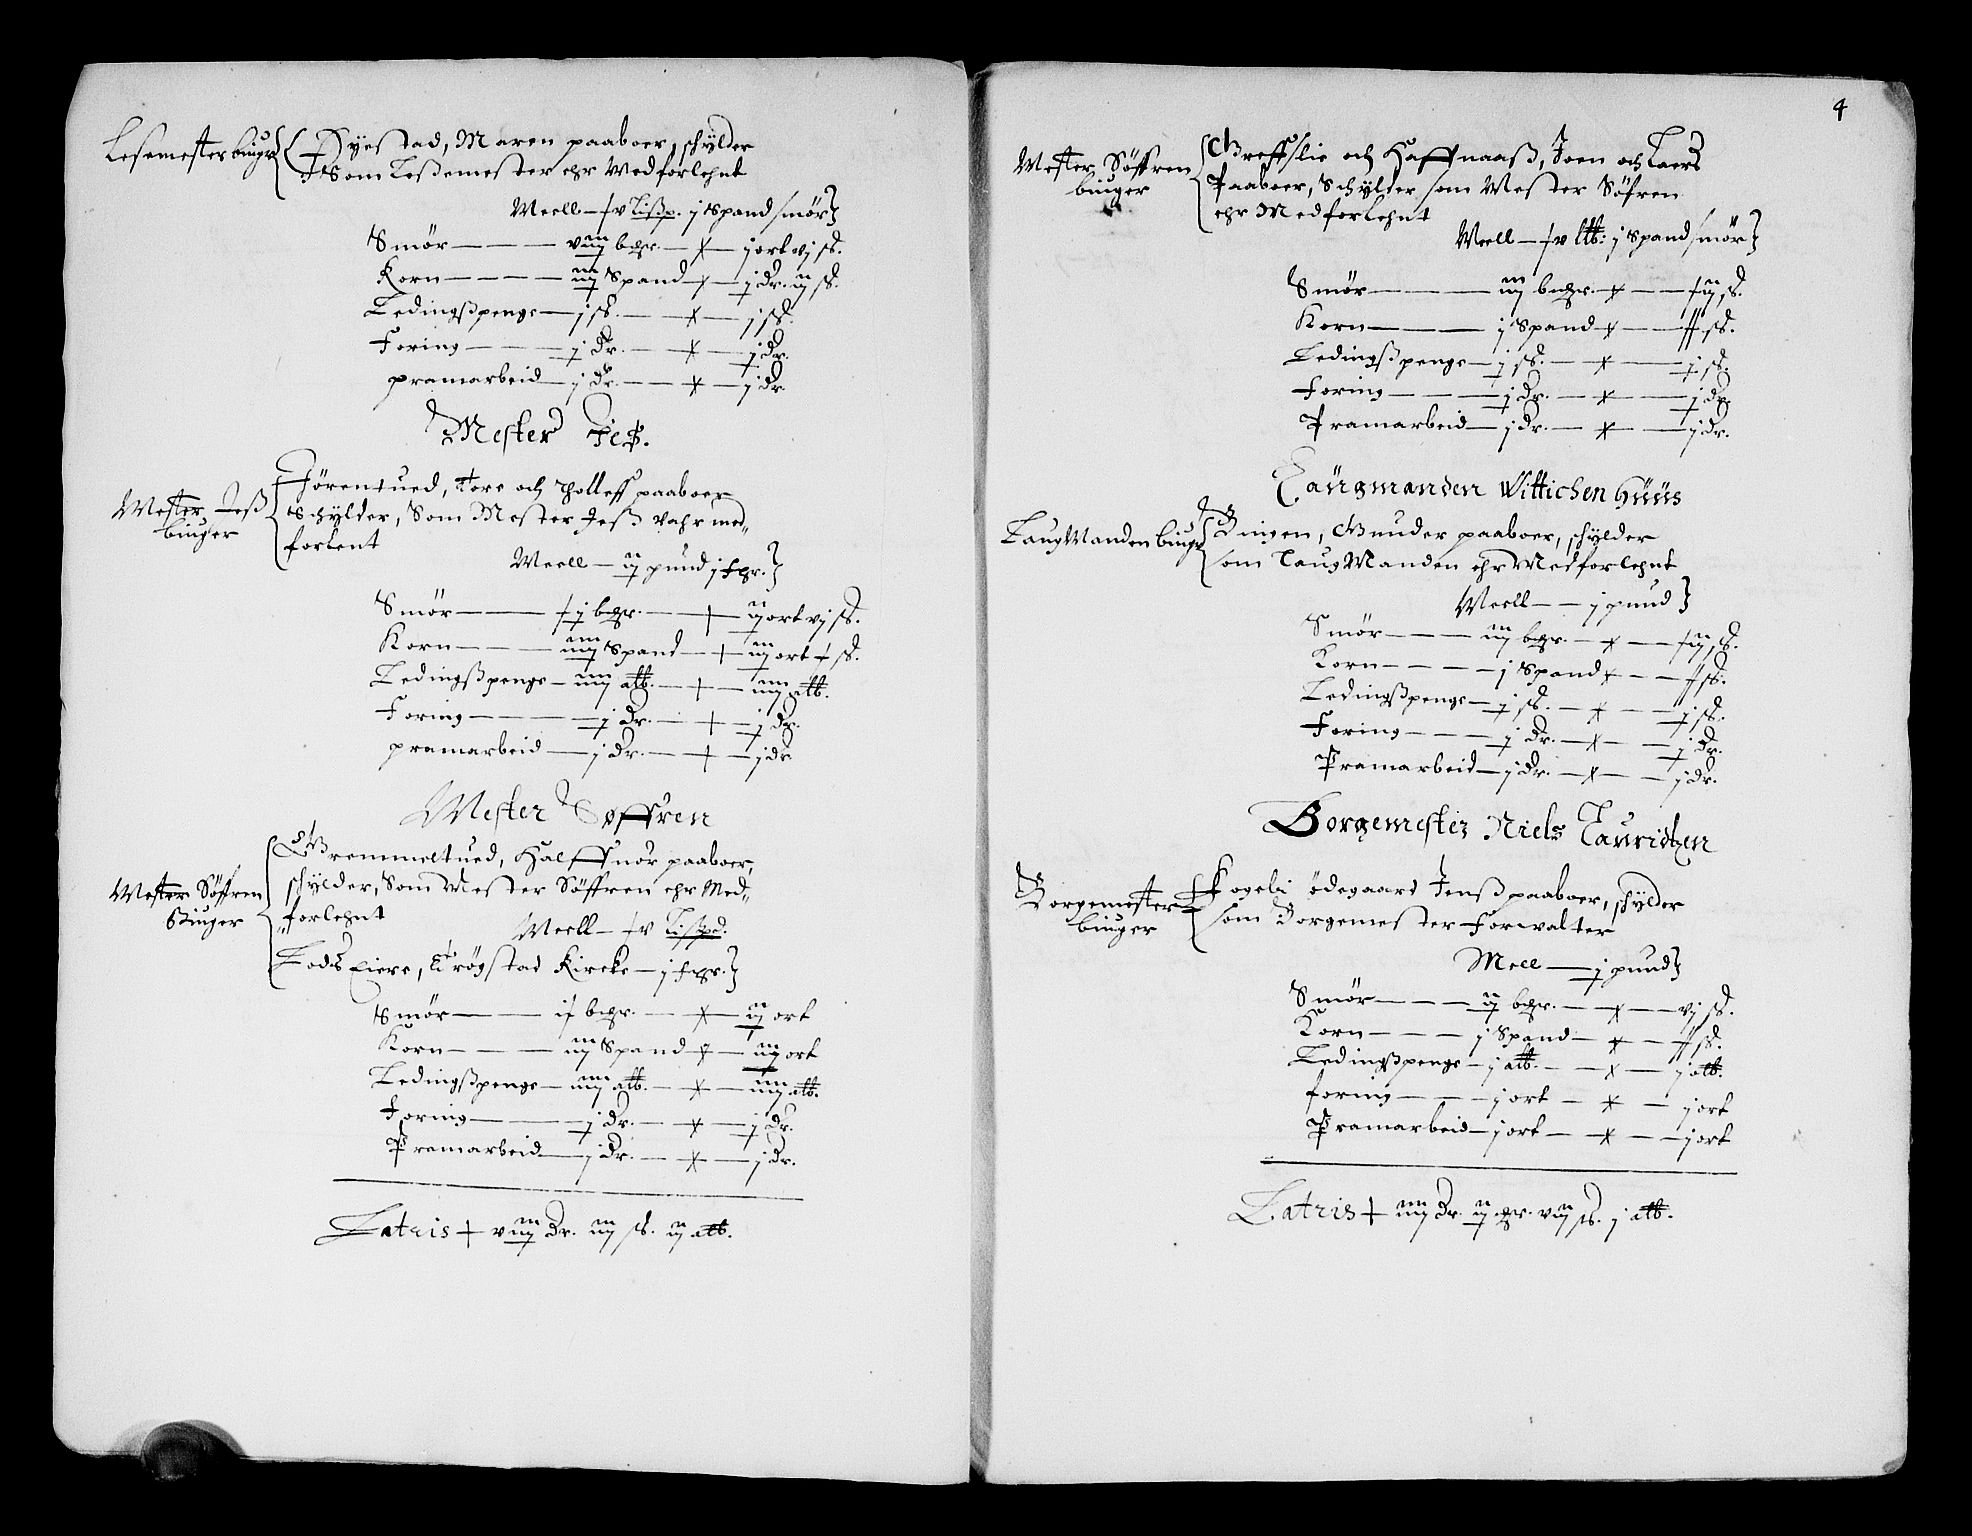 Lesemester biuger
Dyestad, Maren paaboer, schylder
som Leßemester ehr Medforlehnt
Meell — ƒv Lißp. j Spand smør
Smör — viij bchr. — x — j ort vj sß.
Korn — iij Spand — x — j Dr. ij sß.
Ledingßpenge — j sß. — x — j sß.
Foring — j Dr. — x — j Dr.
pramarbeid — j Dr. — x — j dr
Mester Jeß.
Mester Jeß
biuger
Jörentued, Tore och paaboer
Schylder, Som Mester Jeß vahr med„
forlent
Meell — ij pund j fchr.
Smör — bchr. — + — ij ort vj sß.
Korn — iiij Spand — + — iij ort sß.
Ledingßpenge — iiij alb. — + — iiij alb.
Foring — j Dr. — + — j Dr.
pramarbeid — j Dr. — + — j dr
Mester Søffren
Mester Söffren
Biuger
Gremmeltued, Halffuor paaboer,
schylder, Som Mester Söffren ehr Med„
„forlehnt
Meell — ƒv Lißpd.
Lods Eiere, Trögstad Kircke — j fchr.
Smör — bchr. — x — ij ort
Korn — iij Spand — x — iij ort
Ledingßpenge — iiij alb. — x — iiij alb.
Foring — j Dr. — x — j Dr.
Pramarbeid — j Dr. — x — j Dr.
Latris + viij Dr. iij sß. ij alb.
4
Mester Söffren
biuger
Greffslie och Haffnaaß, Joen och Laers
Paaboer, Schylder som Mester Söfren
ehr Medforlehnt
Meell — ƒv ltb: j Spand smör
Smör — iij bchr. — x — sß.
Korn — j Spand — x — sß.
Ledingßpenge — j sß. — x — j sß.
Foring — j Dr. — x — j Dr.
Pramarbeid — j Dr. — x — j Dr.
Laugmanden Wittichen Hüüs
LaugManden biuger
Gunder paaboer, schylder
som LaugManden ehr Medforlehnt
Meell — j pund
Smör — iij bchr. — x — sß.
Korn — j Spand — x — sß.
Ledingßpenge — j sß. — x — j sß.
Foring — j Dr. — x — j Dr.
Pramarbeid — j Dr. — x — j dr.
Borgemester Niels Lauridtzen
Borgemester
biuger
Fogelsi ödegaard Jenß paaboer, schylder
som Borgemester Forwalter
Meel — j pund
Smör — ij bchr. — x — vj sß.
Korn — j Spand — x — sß.
Ledingßpenge — j alb. — x — j alb.
foring — j ort — x — j ort
Pramarbeid — j ort — x — j ort
Latris + iiij Dr. ij chr. vij sß. j alb.